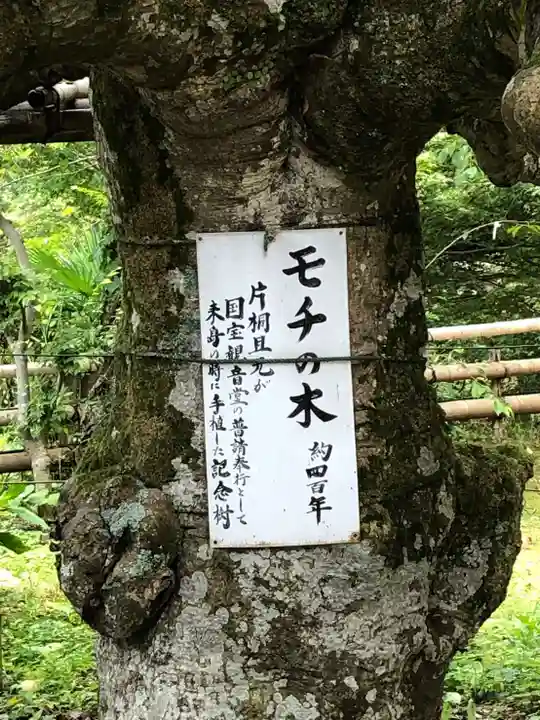 モチの木 約四百年
片桐且元が
国宝観音堂の普請奉行として
来身の時に手植した記念樹